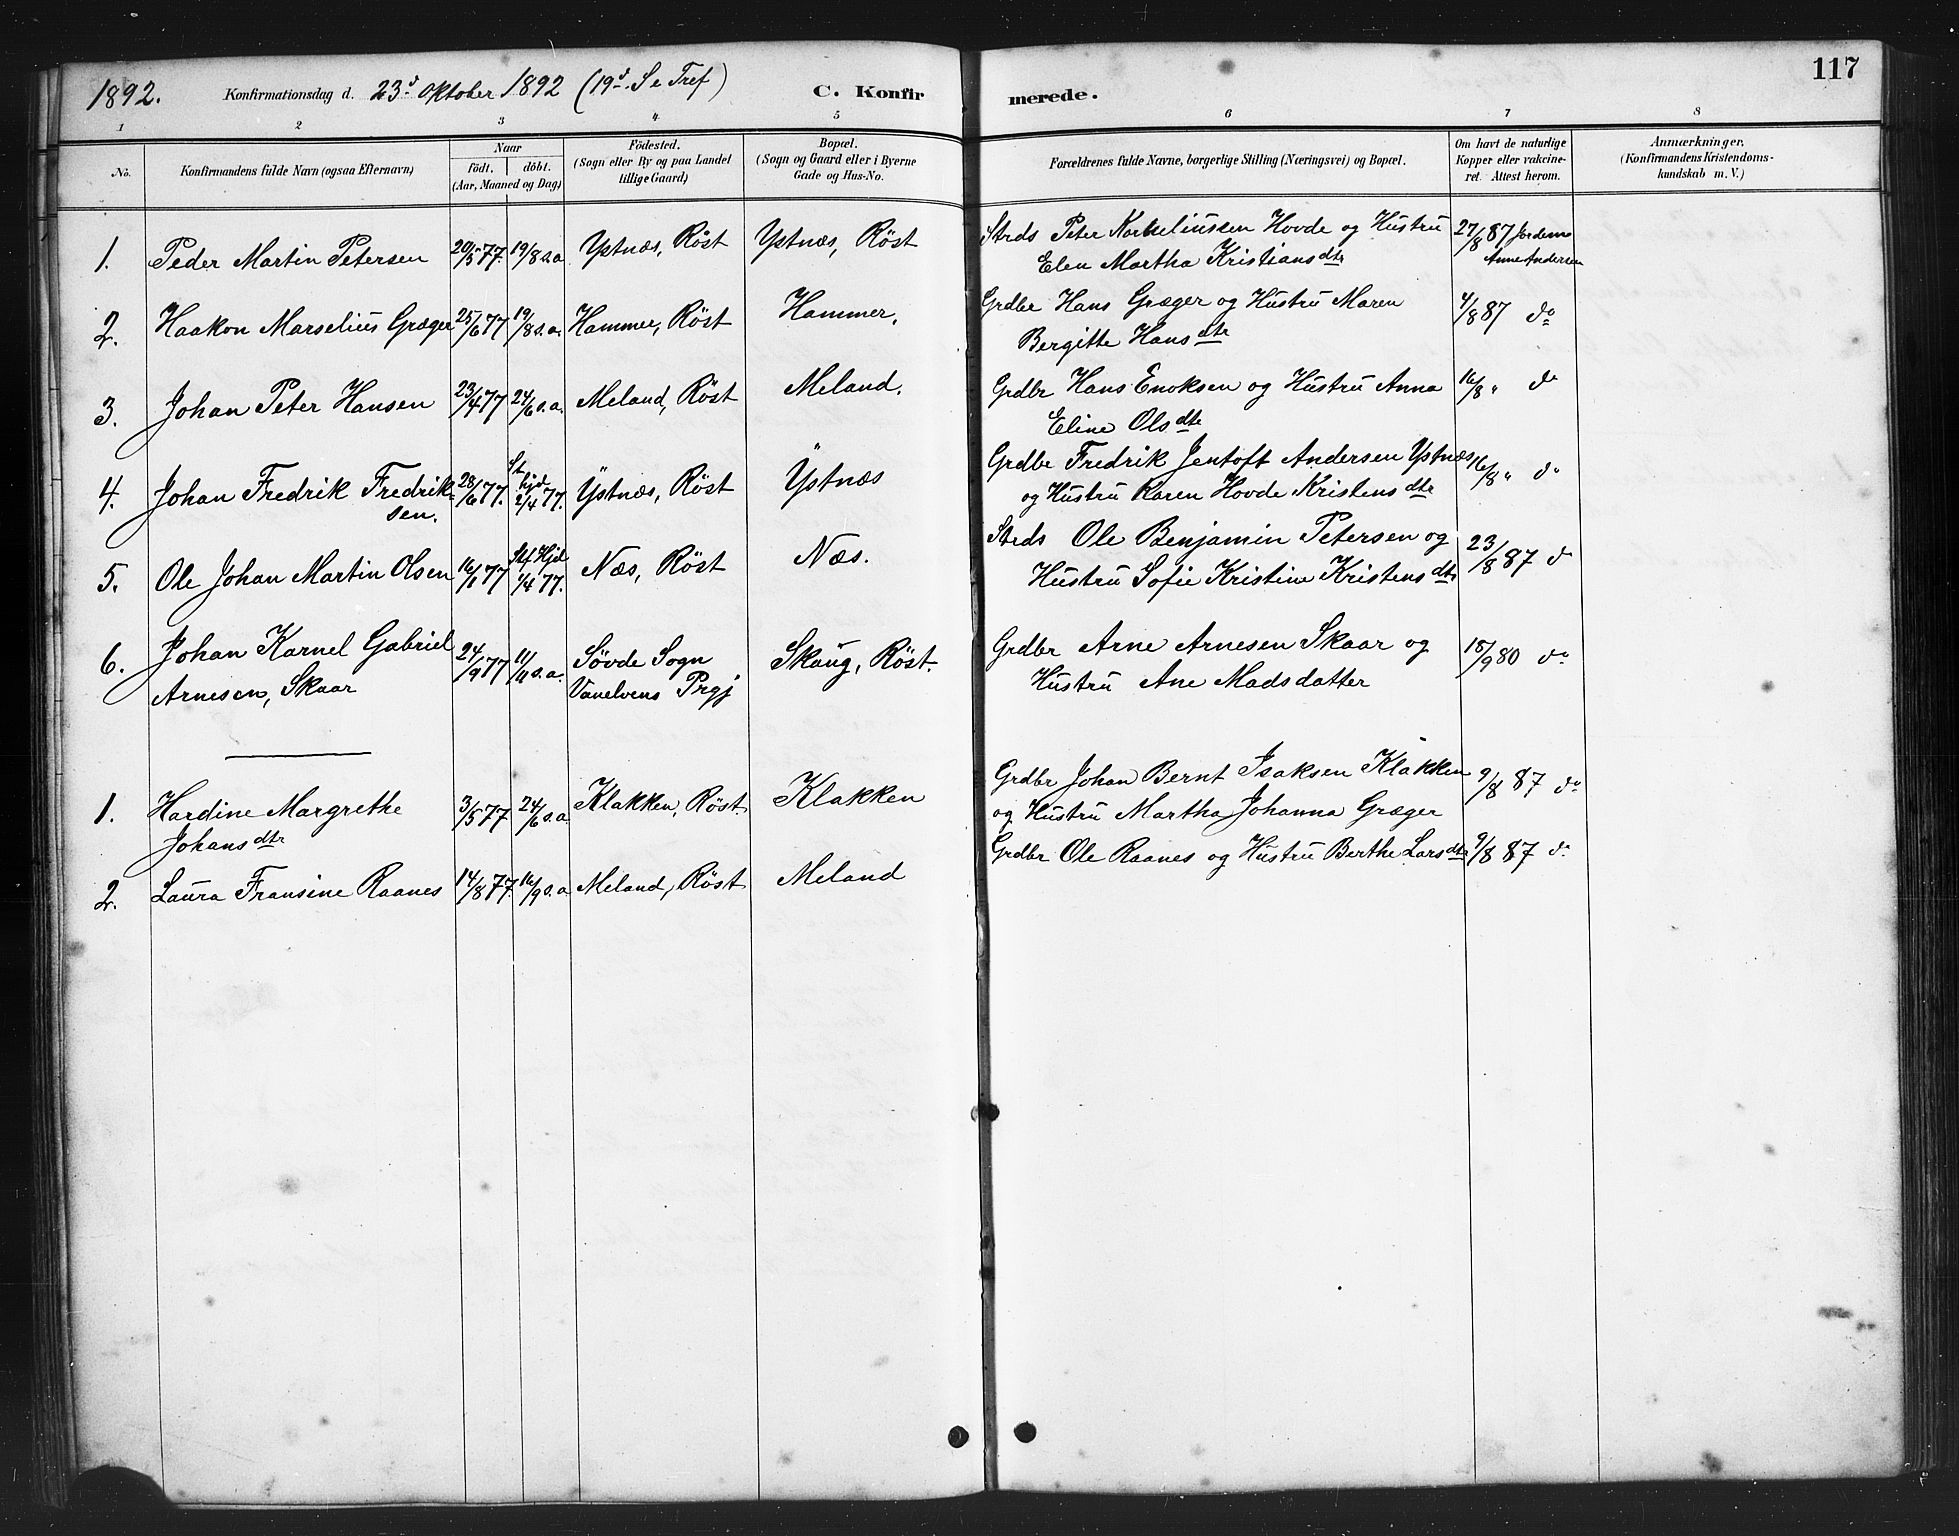 117
1892. Konfirmationsdag d. 23d Oktober 1892 (19d. S e Tref) C. Konfir merede.
1 2 3 4 5 6 7 8
No. Konfirmandens fulde Navn (ogsaa Efternavn) Naar
födt. döbt.
(Aar, Maaned og Dag)
Födested.
(Sogn eller By og paa Landet
tillige Gaard)
Bopæl.
(Sogn og Gaard eller i Byerne
Gade og Hus-No.
Forældrenes fulde Navne, borgerlige Stilling (Næringsvei) og Bopæl.
Om havt de naturlige
Kopper eller vakcine-
ret. Attest herom.
Anmærkninger.
(Konfirmandens Kristendoms-
kundskab m. V.)
1. Peder Martin Petersen 20/5 77. 19/8 s.a. Ystnæs, Röst Ystnæs, Röst Strds Peter Kornelinssen Hovde og Hustru 27/8 87 Jordem
Elen Martha Kristiansdtr Anne Andersen
2. Haakon Marselius Græger 25/6 77 19/8 s.a. Hammer, Röst Hammer. Grdbr Hans Græger og Hustru Maren 4/8 87 do
Bergitte Hansdtr
3. Johan Peter Hansen 23/4 77 24/6 s.a. Meland, Röst Meland. Grdbr Hans Enoksen og Hustru Anna 16/8 " do
Eline Olsdtr
4. Johan Fredrik Fredrik- 28/6 77. 2/4 77. Ystnæs, Röst Ystnæs Grdbr Fredrik Jentoft Andersen Ystnæs 16/8 " do
sen. og Hustru Karen Hovde Kristensdtr
5. Ole Johan Martin Olsen 16/1 77 Stf Hjd 1/4 77. Næs, Röst Næs. Strds Ole Benjamin Petersen og 23/8 87 do
Hustru Sofie Kristine Kristensdtr
6. Johan Karnel Gabriel 24/9 77 11/11 s.a. Sövde Sogn Skaug, Röst. Grdbr Arne Arnesen Skaar og 18/9 80 do
Arnesen, Skaar Vanelvens Prgj Hustru Ane Madsdatter
1. Hardine Margrethe 3/5 77 24/6 s.a. Klakken, Röst. Klakken Grdbr Johan Bernt Isaksen Klakken 9/8 87 do
Johansdtr og Hustru Martha Johanna Græger
2. Laura Fransine Raanes 14/8 77. 16/9 s.a. Meland, Röst Meland Grdbr Ole Raanes og Hustru Berthe Larsdtr 9/8 87 do